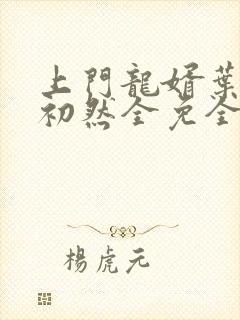 上門龍婿葉
初然全免全
楊虎元